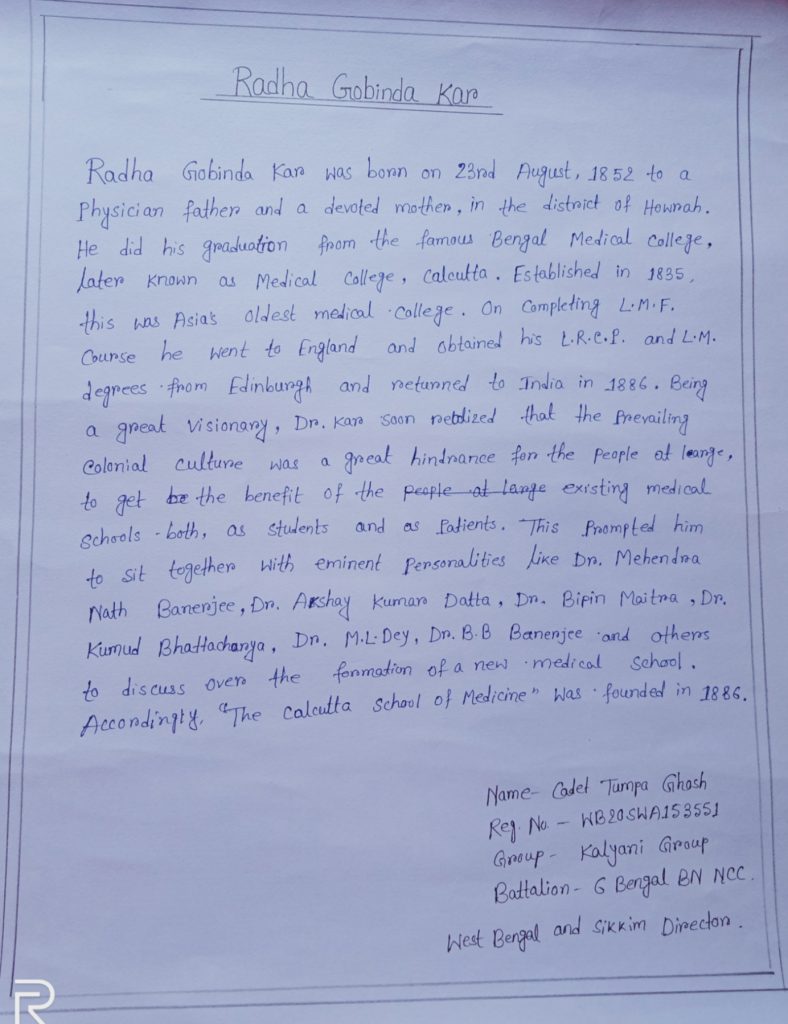 Radha Gobinda Kar
Radha Gobinda Kar was born on 23rd August, 1852 to a
Physician father and a devoted mother, in the district of Howrah.
He did his graduation from the famous Bengal Medical College,
later known as Medical College, Calcutta. Established in 1835,
this was Asia's oldest medical college. On Completing L.M.F.
Course he went to England and obtained his L.R.C.P. and L.M.
degrees from Edinburgh and returned to India in 1886. Being
a great Visionary, Dr. Kar soon realized that the Prevailing
Colonial culture was a great hindrance for the people at large,
to get be the benefit of the people at large existing medical
Schools both, as students and as Patients. This Prompted him
to sit together with eminent personalities like Dr. Mehendra
Nath Banerjee, Dr. Akshay Kumar Datta, Dr. Bipin Maitra, Dr.
Kumud Bhattacharya, Dr. M.L.Dey, Dr. B.B Banerjee and others
to discuss over the formation of a new medical school.
Accordingly, "The Calcutta School of Medicine" was founded in 1886.
Name- Cadet Tumpa Ghosh
Reg. No. - WB20SWA153551
Group- Kalyani Group
Battalion- 6 Bengal BN NCC.
West Bengal and Sikkim Director.
R